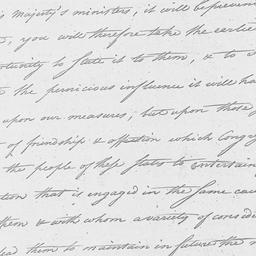 s Majesty's ministers, it will be preven
, you will therefore take the earlie
ortunity to state it to them, & to s
the pernicious influence it will hav
upon our measures; but upon those
of friendship & affection which Congre
the people of these States to entertain
tion that is engaged in the same cau
them & with whom a variety of conside
lead them to maintain in future the m